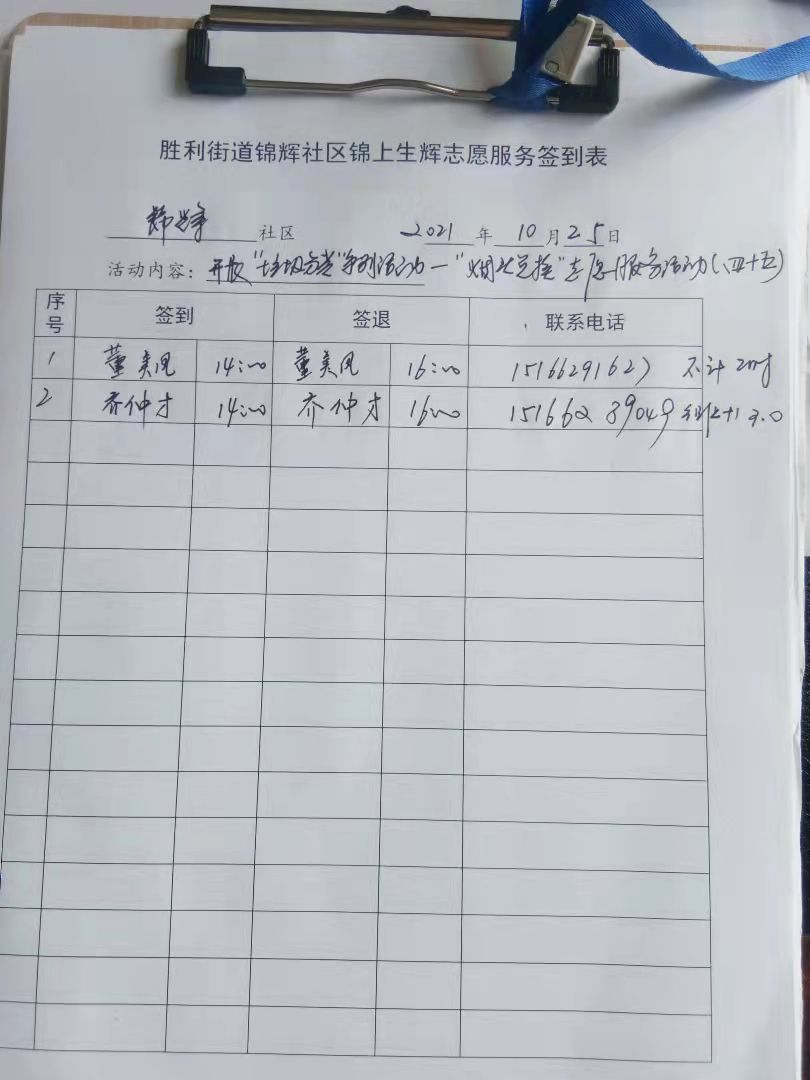 胜利街道锦辉社区锦上生辉志愿服务签到表
锦辉 社区 2021 年 10 月 25 日
活动内容：开展“垃圾分类”系列活动—“烟头兑换”志愿服务活动(四十五)
序号 签到 签退 联系电话
1 董美凤 14:00 董美凤 16:00 15166291627 不计 2时
2 乔仲才 14:00 乔仲才 16:00 15166239049